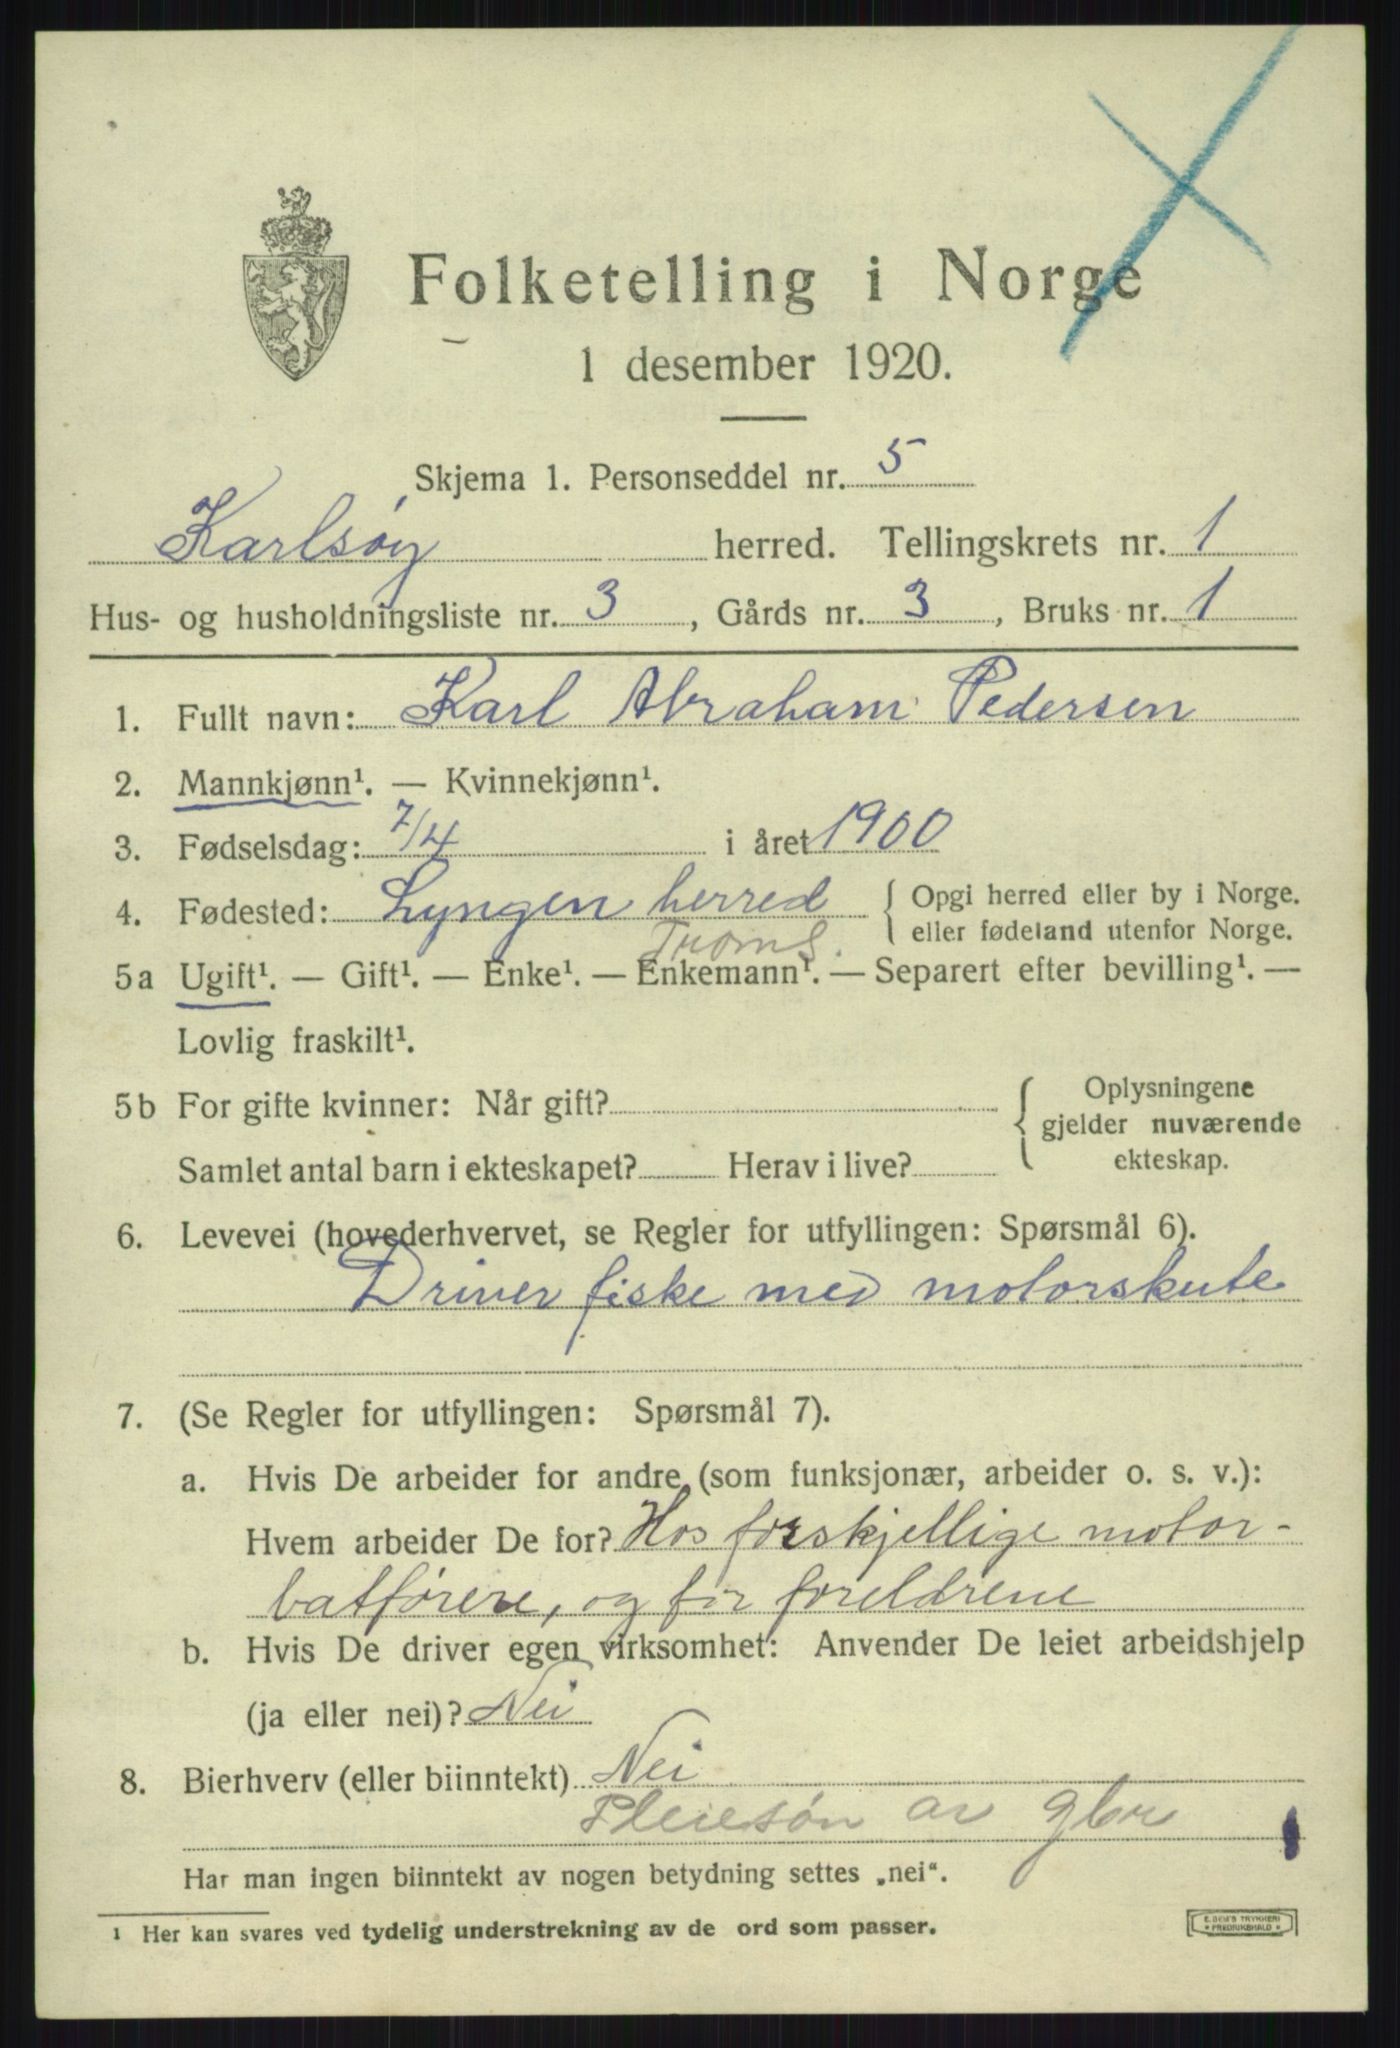 Folketelling i Norge
1 desember 1920.
Skjema 1. Personseddel nr. 5
Karlsøy herred. Tellingskrets nr. 1
Hus- og husholdningsliste nr. 3, Gårds nr. 3, Bruks nr. 1
1. Fullt navn: Karl Abraham Pedersen
2. Mannkjønn¹. — Kvinnekjønn¹.
3. Fødselsdag: 7/4 i året 1900
4. Fødested: Lyngen herred { Opgi herred eller by i Norge.
eller fødeland utenfor Norge.
Troms.
5a Ugift¹. — Gift¹. — Enke¹. — Enkemann¹. — Separert efter bevilling¹. —
Lovlig fraskilt¹.
5b For gifte kvinner: Når gift? { Oplysningene
gjelder nuværende
ekteskap.
Samlet antal barn i ekteskapet? Herav i live?
6. Levevei (hovederhvervet, se Regler for utfyllingen: Spørsmål 6).
Driver fiske med motorskute
7. (Se Regler for utfyllingen: Spørsmål 7).
a. Hvis De arbeider for andre (som funksjonær, arbeider o. s. v.):
Hvem arbeider De for? Hos forskjellige motor-
batførere, og for foreldrene
b. Hvis De driver egen virksomhet: Anvender De leiet arbeidshjelp
(ja eller nei)? Nei
8. Bierhverv (eller biinntekt) Nei
Pleiesøn av gbr
Har man ingen biinntekt av nogen betydning settes „nei“.
¹ Her kan svares ved tydelig understrekning av de ord som passer.
FREDRIKSHALD